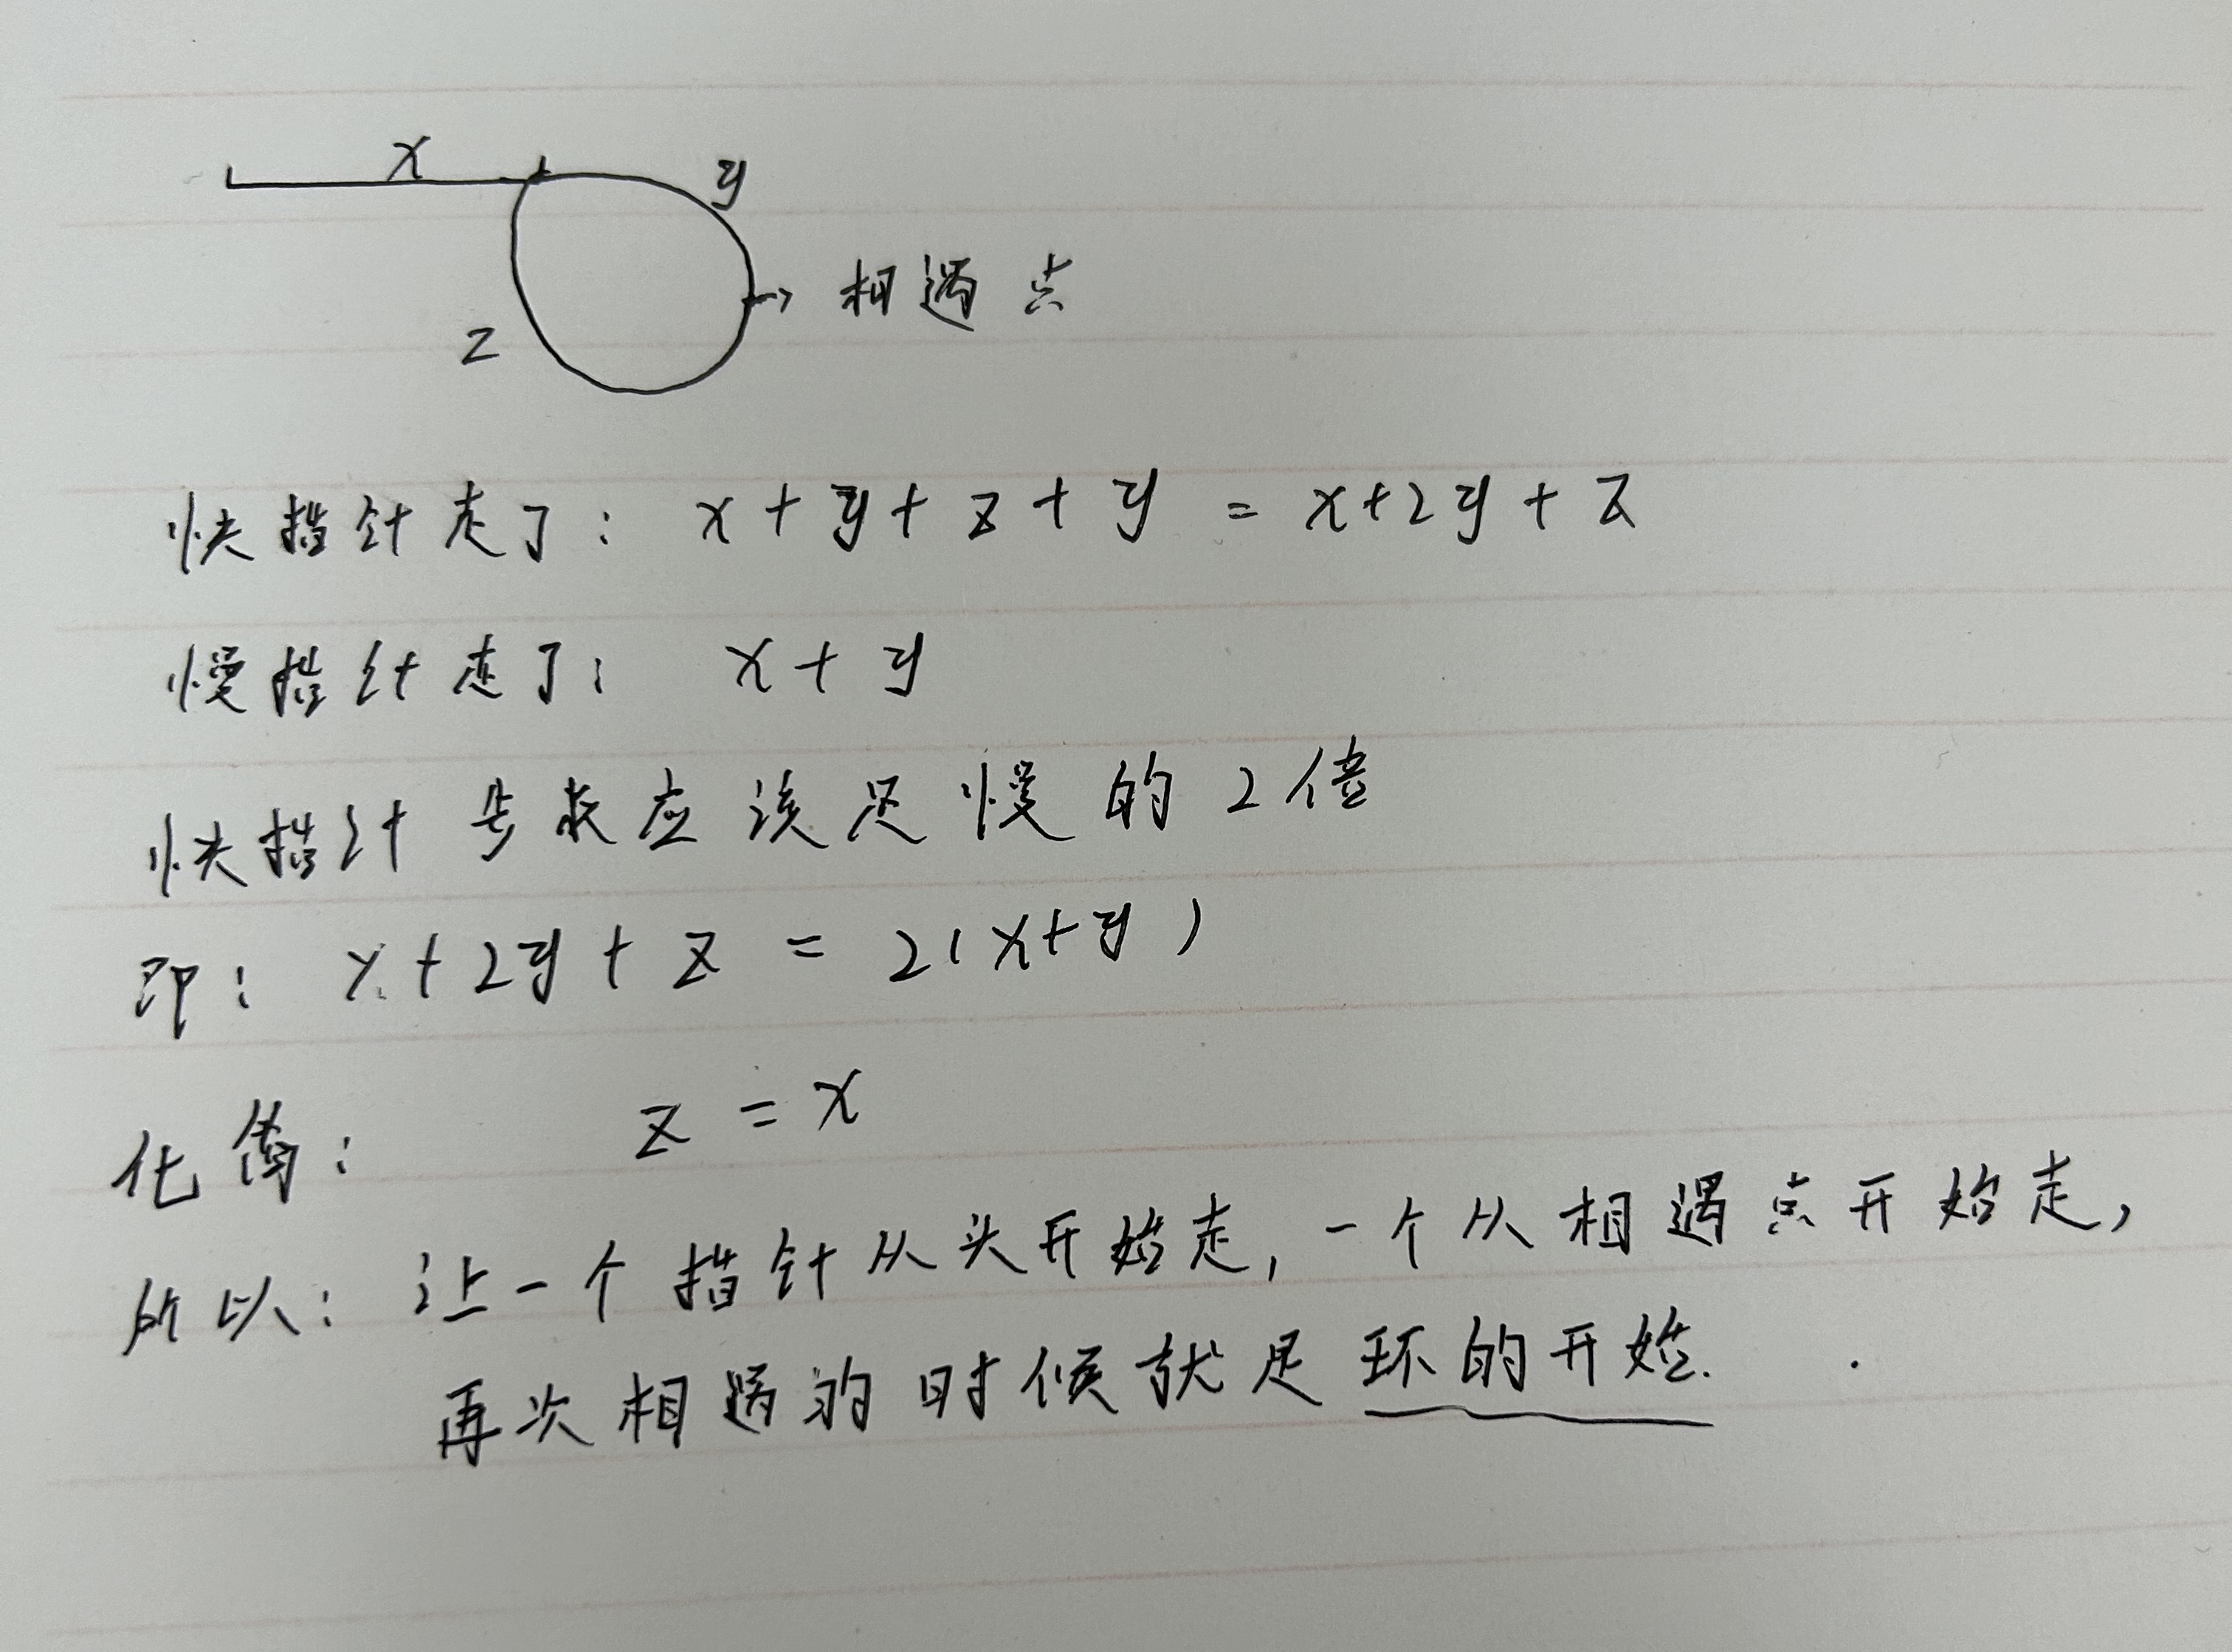 x
y
相遇点
z
快指针走了: x+y+z+y = x+2y+z
慢指针走了: x+y
快指针步数应该是慢的2倍
即: x+2y+z = 2(x+y)
化简: z = x
所以: 让一个指针从头开始走, 一个从相遇点开始走,
再次相遇的时候就是环的开始.